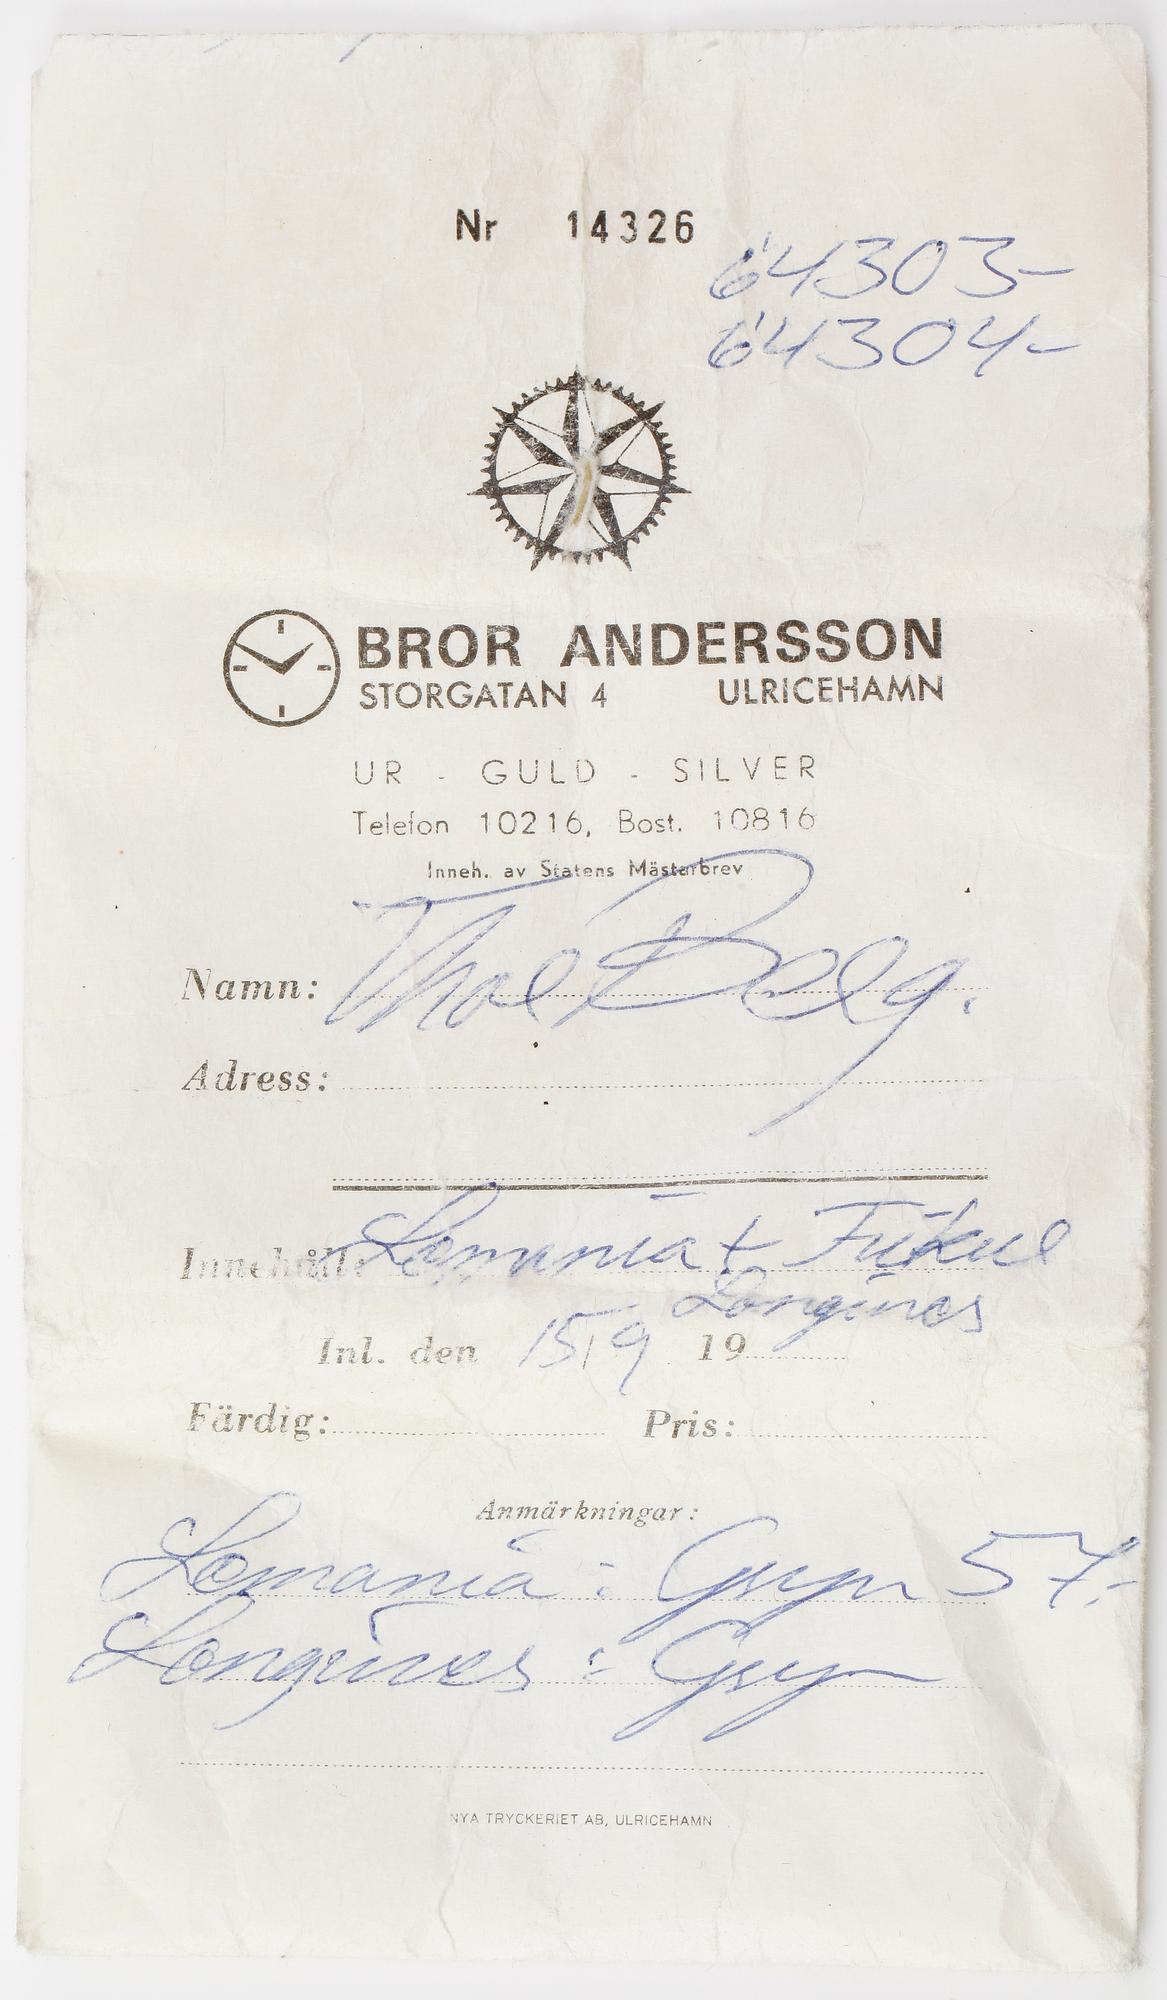 Nr 14326
64303-
64304-
BROR ANDERSSON
STORGATAN 4 ULRICEHAMN
UR - GULD - SILVER
Telefon 10216, Bost. 10816
Inneh. av Statens Mästarbrev
Namn:
Adress:
Innehåll: Lemania +
Longines
Inl. den 15/9 19
Färdig: Pris:
Anmärkningar:
Lemania : 57.-
Longines :
NYA TRYCKERIET AB, ULRICEHAMN